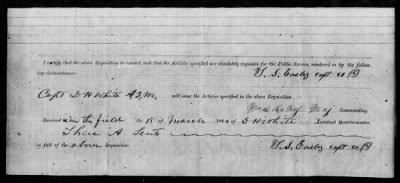 I certify that the above Requisition is correct, and that the Articles specified are absolutely requisite for the Public Service, rendered so by the follow-
ing circumstances:
T. S. Easley capt co (B)
Capt D H White A Q M. will issue the Articles specified in the above Requisition.
Maj Commanding.
Received in the field the 18 of March 186 of D H White Assistant Quartermaster,
Three A Tents
in full of the above Requisition.
T. S. Easley capt co (B)